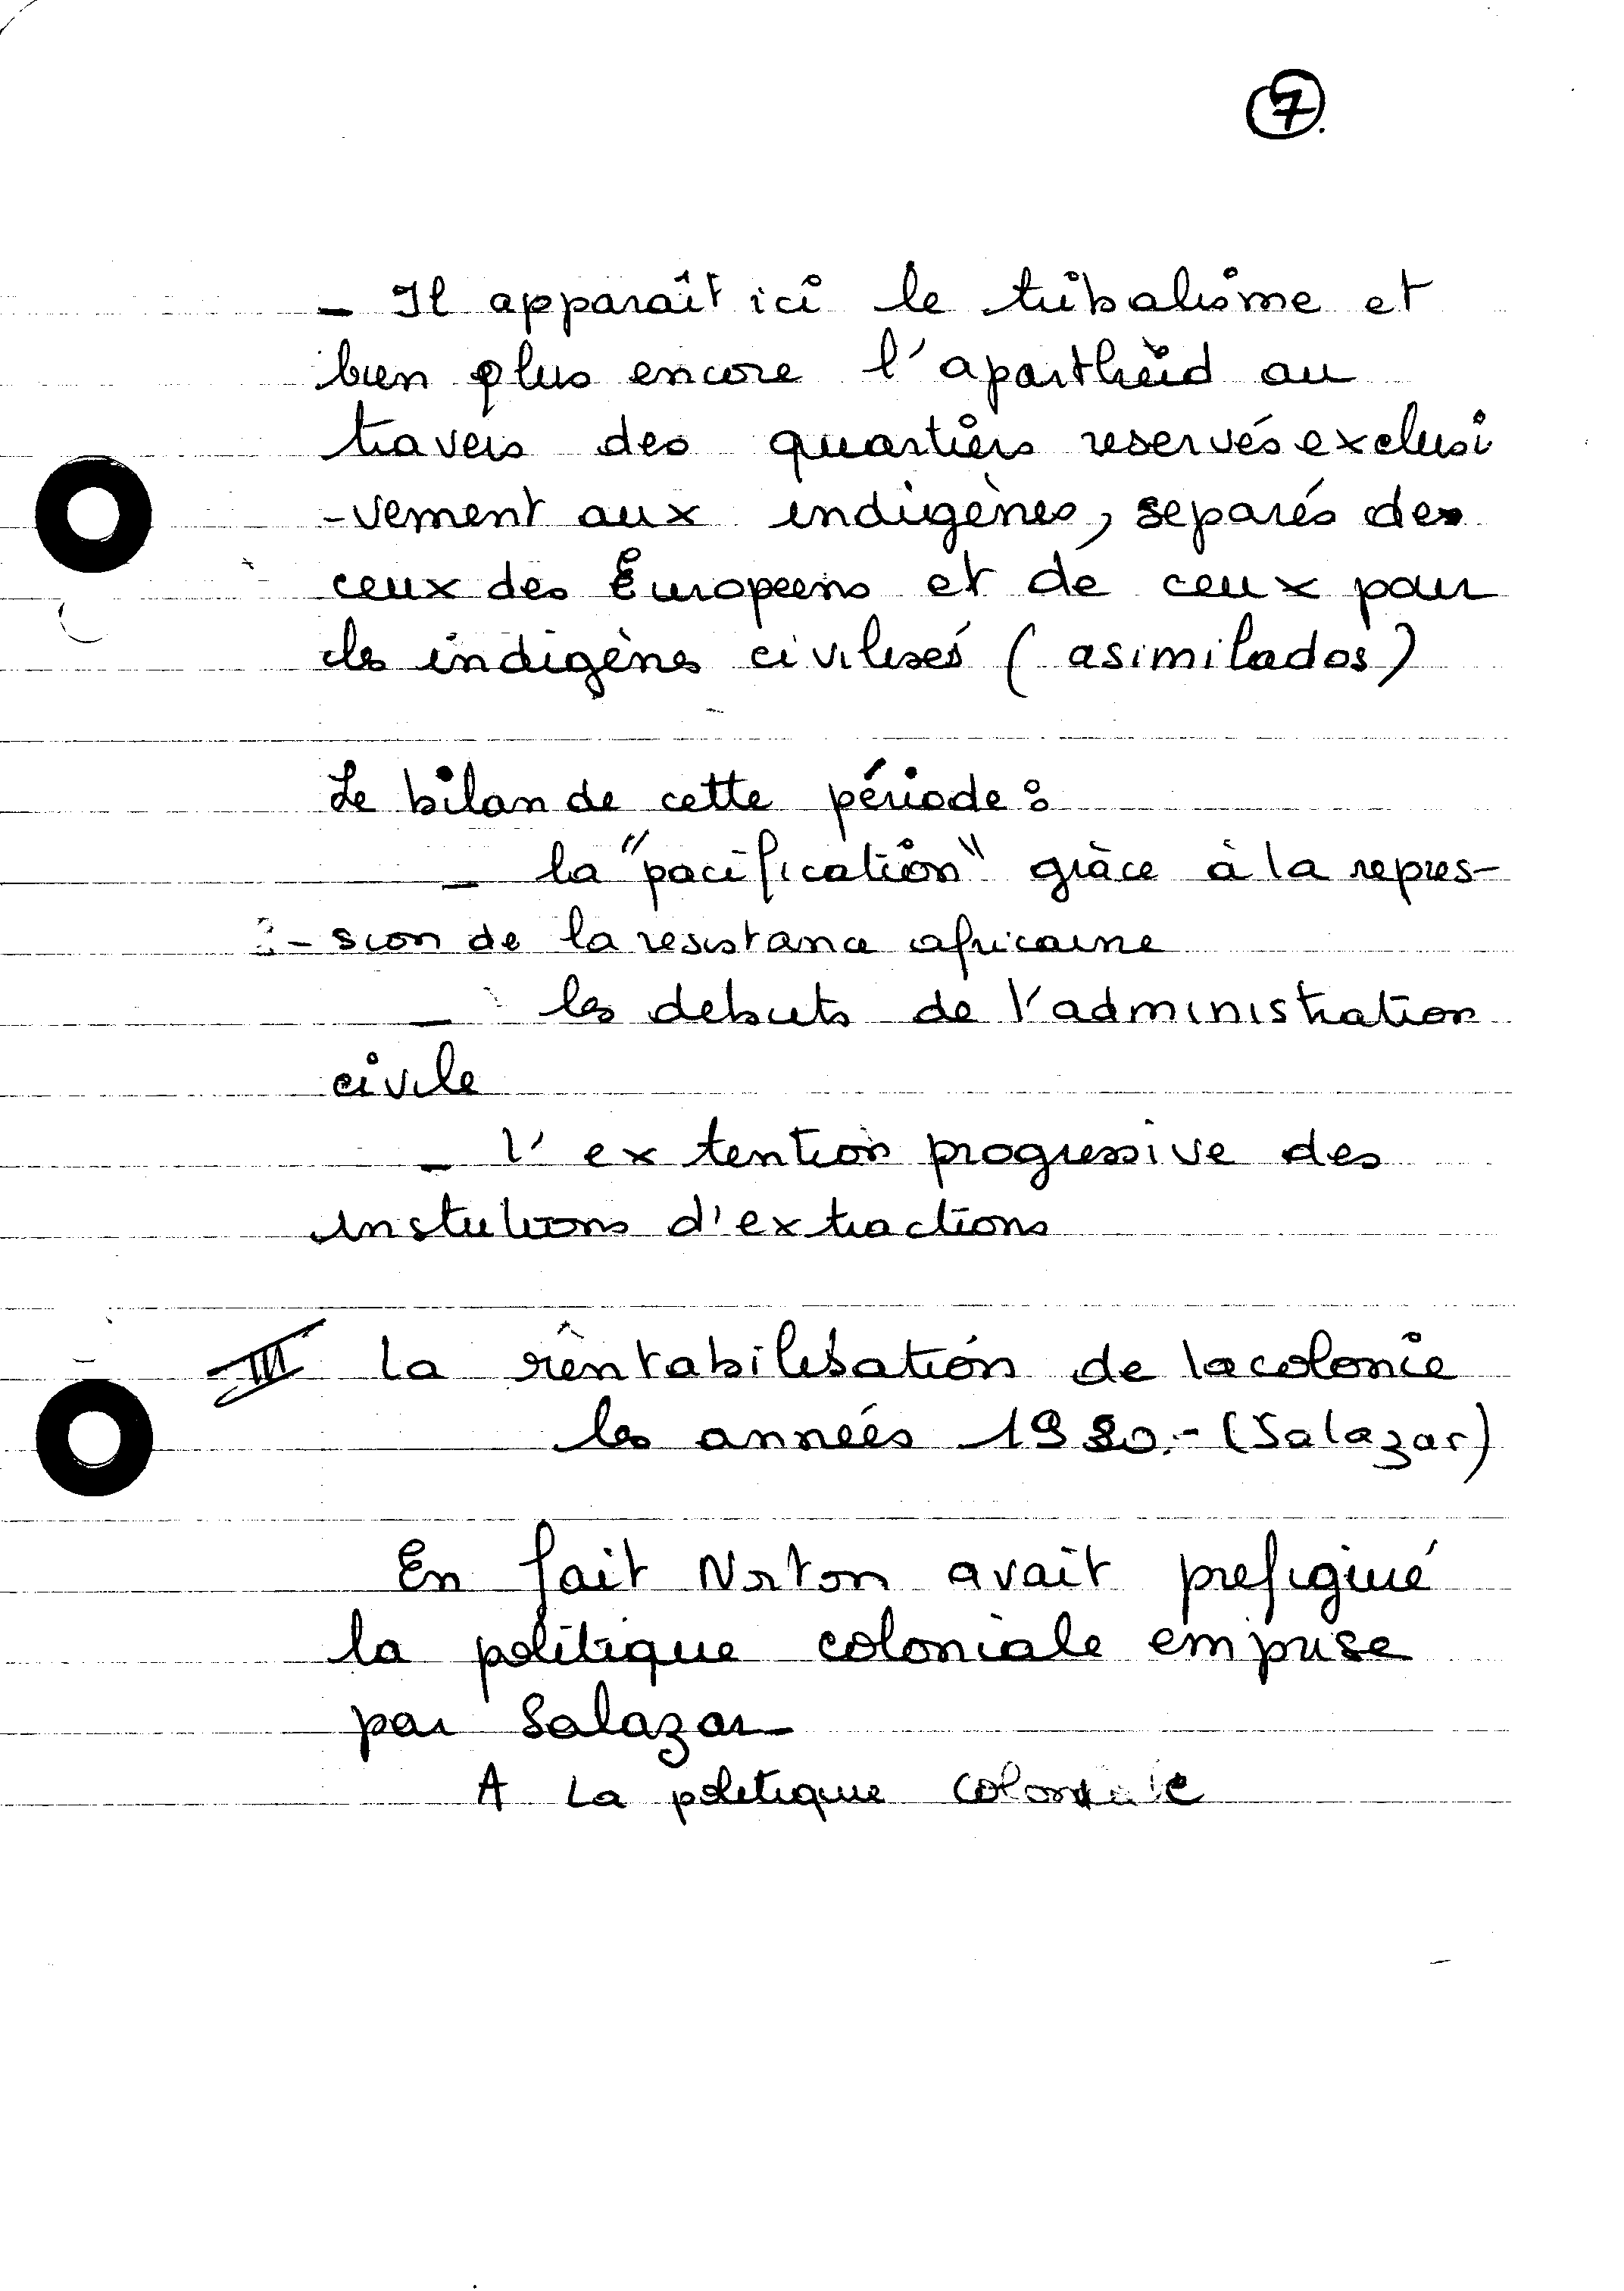 7.
- Il apparaît ici le tribalisme et
bien plus encore l'apartheid au
travers des quartiers reservés exclusi
-vement aux indigènes, separés de
ceux des Européens et de ceux pour
les indigènes civilisés (asimilados)
Le bilan de cette période :
- la "pacification" grâce à la repres-
- sion de la resistance africaine
- les debuts de l'administration
civile
- l'extention progressive des
instutions d'extractions
III La rentabilisation de la colonie
les années 1930.- (Salazar)
En fait Norton avait prefiguré
la politique coloniale emprise
par Salazar
A La politique coloniale